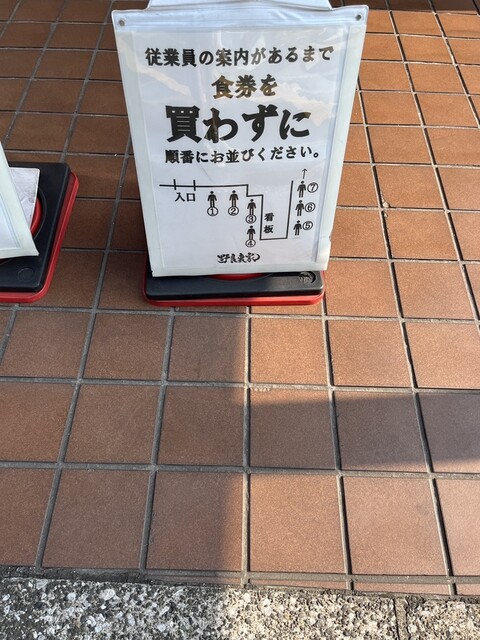 従業員の案内があるまで
食券を
買わずに
順番にお並びください。
入口
①
②
③
④
看板
⑤
⑥
⑦